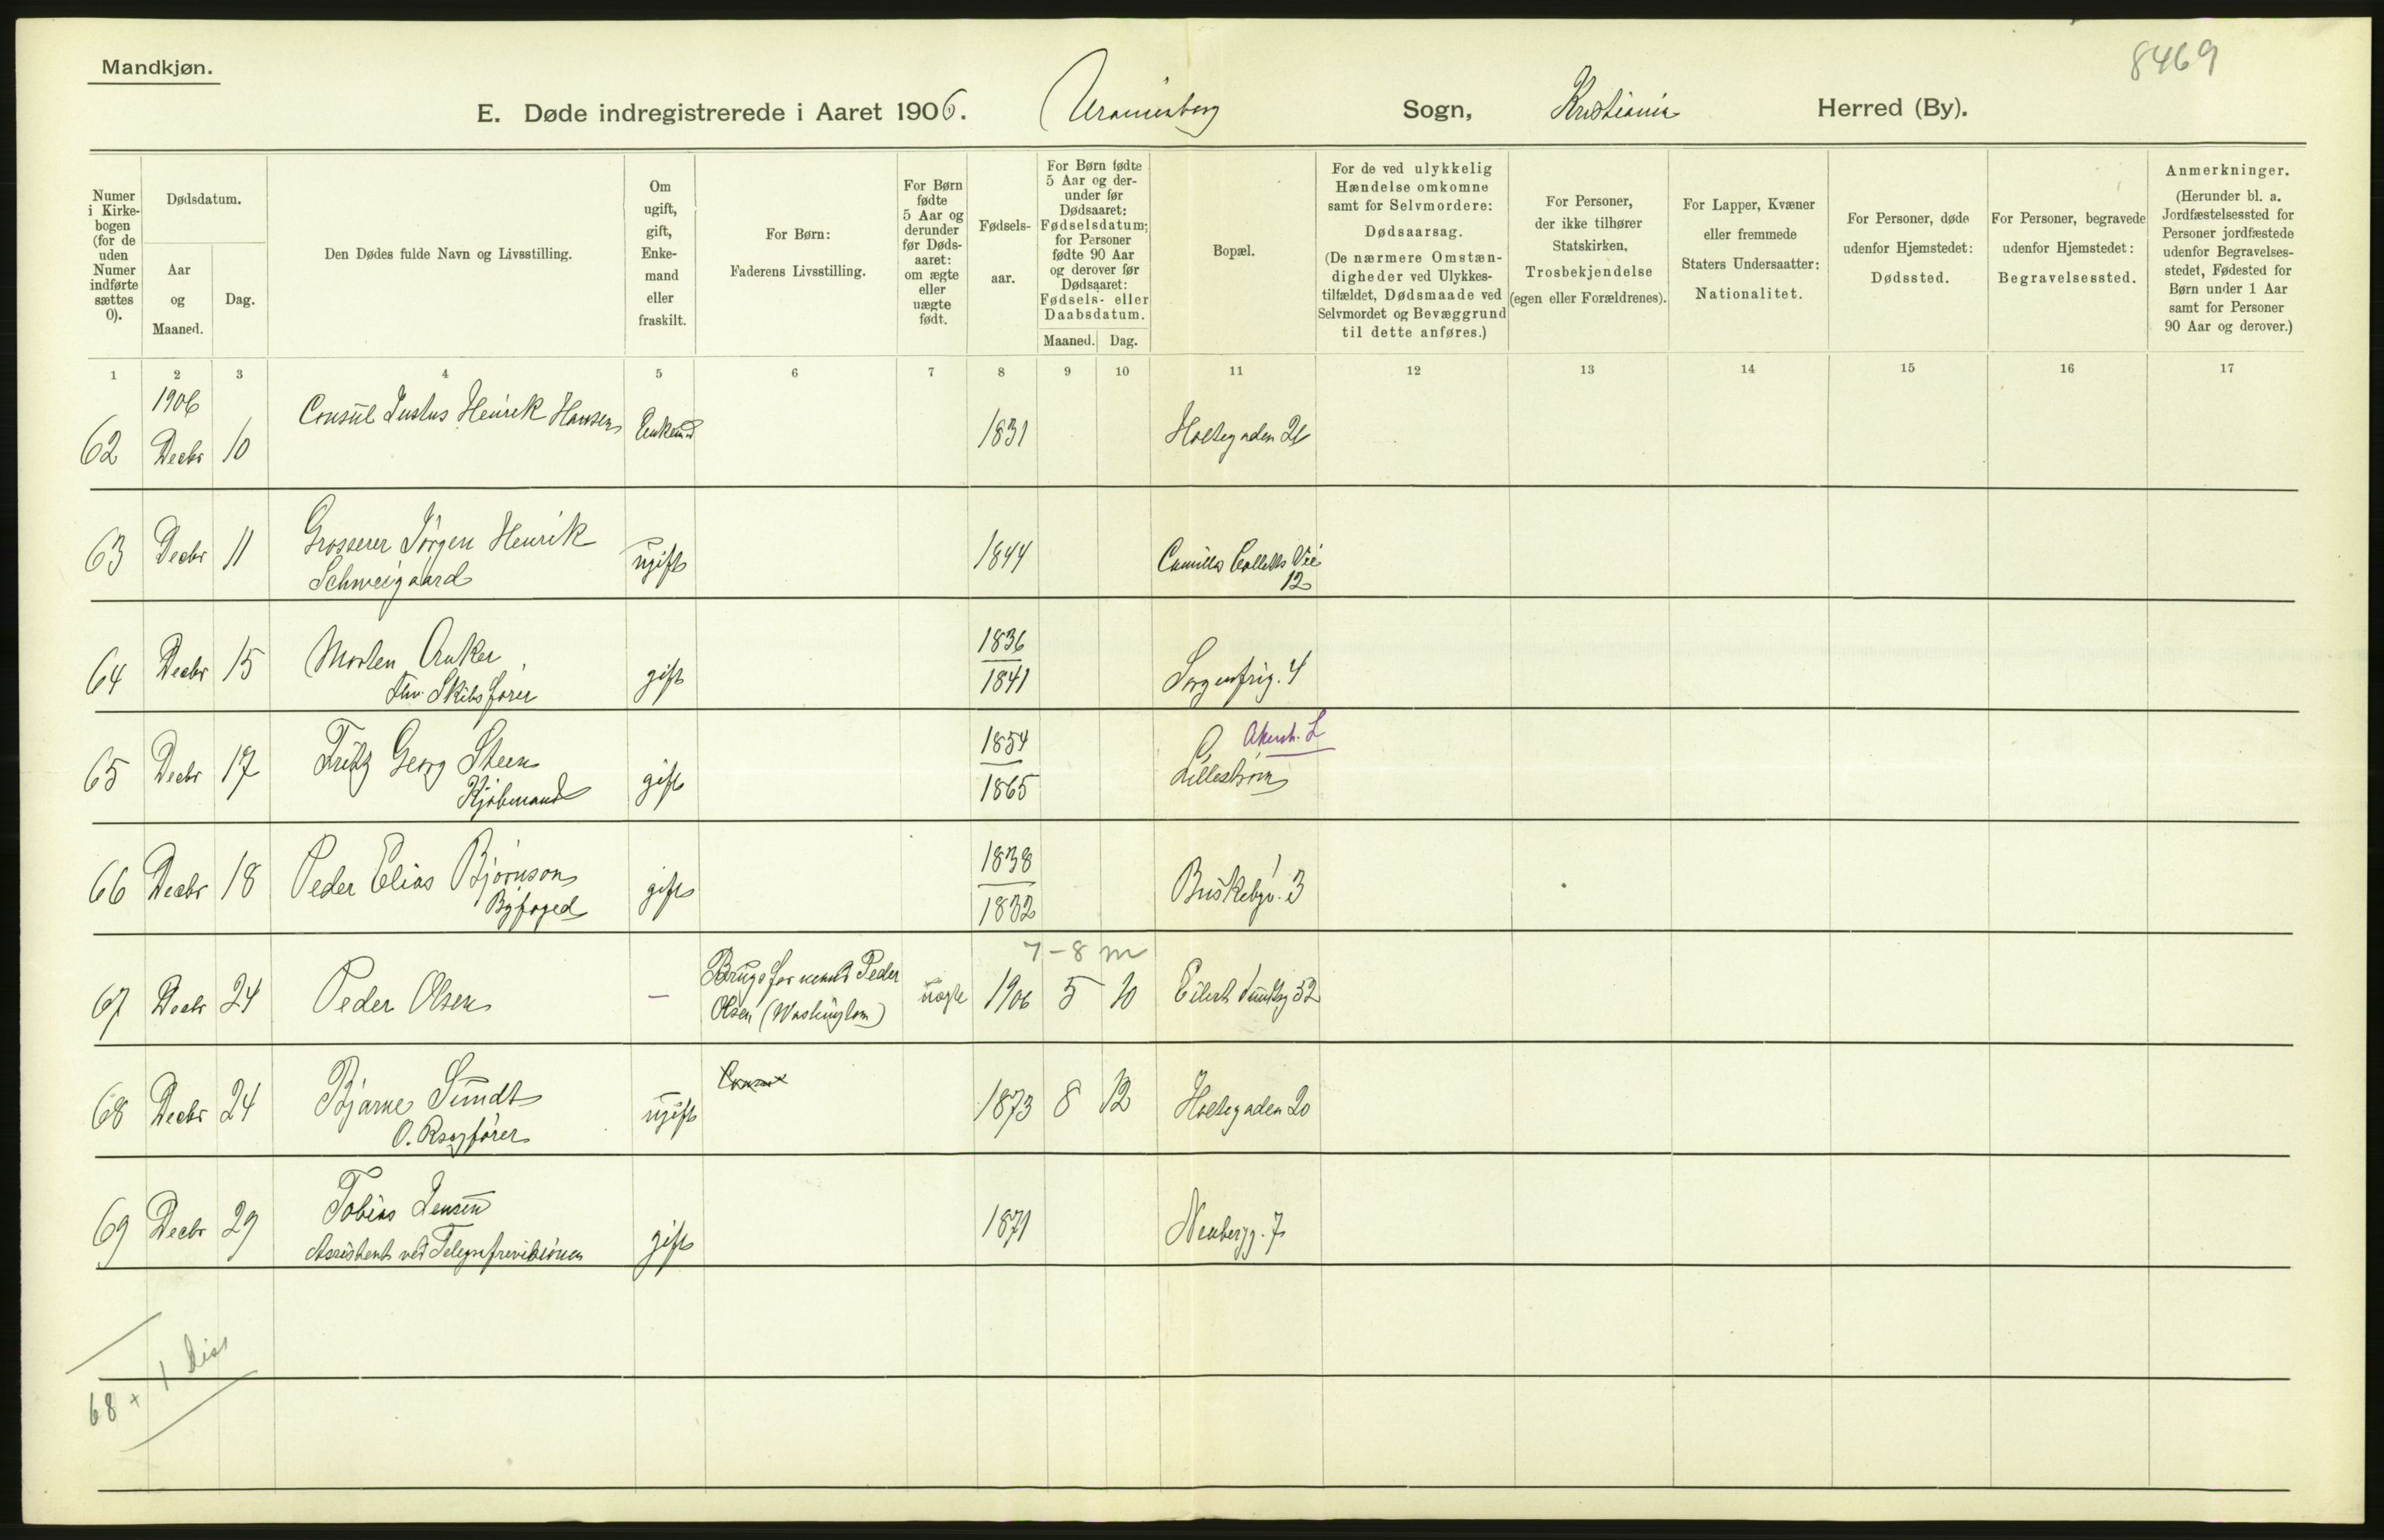 Mandkjøn.
8469
E. Døde indregistrerede i Aaret 1906. Uranienborg Sogn, Kristiania Herred (By).
Numer i Kirkebogen (for de uden Numer indførte sættes 0).
Dødsdatum.
Aar og Maaned.
Dag.
Den Dødes fulde Navn og Livsstilling.
Om ugift, gift, Enkemand eller fraskilt.
For Børn: Faderens Livsstilling.
For Børn fødte 5 Aar og derunder før Dødsaaret: om ægte eller uægte født.
Fødselsaar.
For Børn fødte 5 Aar og derunder før Dødsaaret: Fødselsdatum; for Personer fødte 90 Aar og derover før Dødsaaret: Fødsels- eller Daabsdatum.
Maaned. Dag.
Bopæl.
For de ved ulykkelig Hændelse omkomne samt for Selvmordere: Dødsaarsag. (De nærmere Omstændigheder ved Ulykkestilfældet, Dødsmaade ved Selvmordet og Bevæggrund til dette anføres.)
For Personer, der ikke tilhører Statskirken, Trosbekjendelse (egen eller Forældrenes).
For Lapper, Kvæner eller fremmede Staters Undersaatter: Nationalitet.
For Personer, døde udenfor Hjemstedet: Dødssted.
For Personer, begravede udenfor Hjemstedet: Begravelsessted.
Anmerkninger. (Herunder bl. a. Jordfæstelsessted for Personer jordfæstede udenfor Begravelsesstedet, Fødested for Børn under 1 Aar samt for Personer 90 Aar og derover.)
1 2 3 4 5 6 7 8 9 10 11 12 13 14 15 16 17
1906
62 Decbr 10 Consul Justus Henrik Hansen Enkemd 1831 Holtegaden 21
63 Decbr 11 Grosserer Jörgen Henrik ugift 1844 Camilla Colletts Vei
Schweigaard 12
64 Decbr 15 Morten Anker gift 1836 Sorgenfrig. 4
fhv. Skibsfører 1841
65 Decbr 17 Fritz Georg Steen gift 1854 Akersh. L
Kjøbmand 1865 Lilleström
66 Decbr 18 Peder Elias Björnson gift 1838 Briskebyv. 3
Byfoged 1832
7-8 m
67 Decbr 24 Peder Olsen — Brugsformand Peder uægte 1906 5 10 Eilert Sundtsg 52
Olsen (Washington)
68 Decbr 24 Bjarne Sundt ugift 1873 8 12 Holtegaden 20
O. Rsagfører
69 Decbr 29 Tobias Jensen gift 1871 Neubergg. 7
Assistent ved Telegrafrevisionen
68 + 1 dis